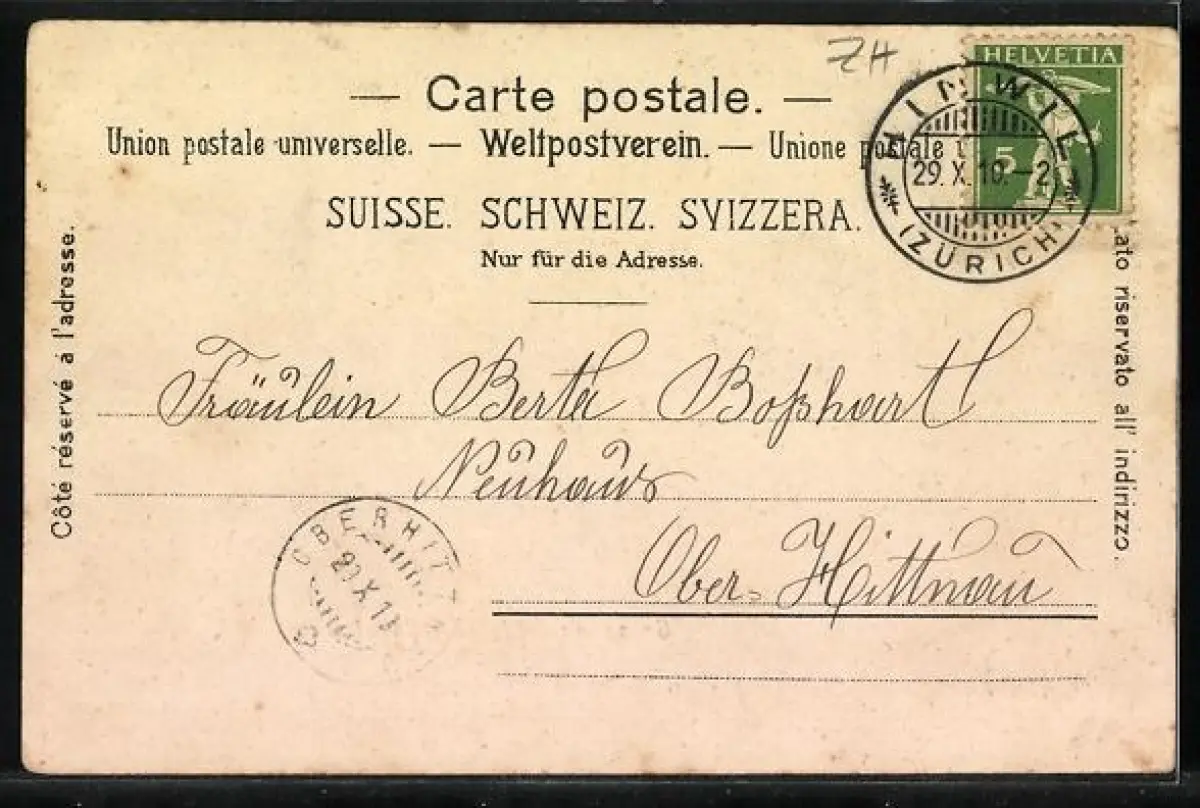 ZH
HELVETIA
5
HINWIL
29. X. 10. - 2
(ZÜRICH)
— Carte postale. —
Union postale universelle. — Weltpostverein. — Unione postale
SUISSE. SCHWEIZ. SVIZZERA.
Nur für die Adresse.
Côté réservé á l'adresse.
lato riservato all' indirizzo.
Fräulein Berta Boßhart
Neuhaus
Ober=Hittnau
OBERHITT
29. X. 10